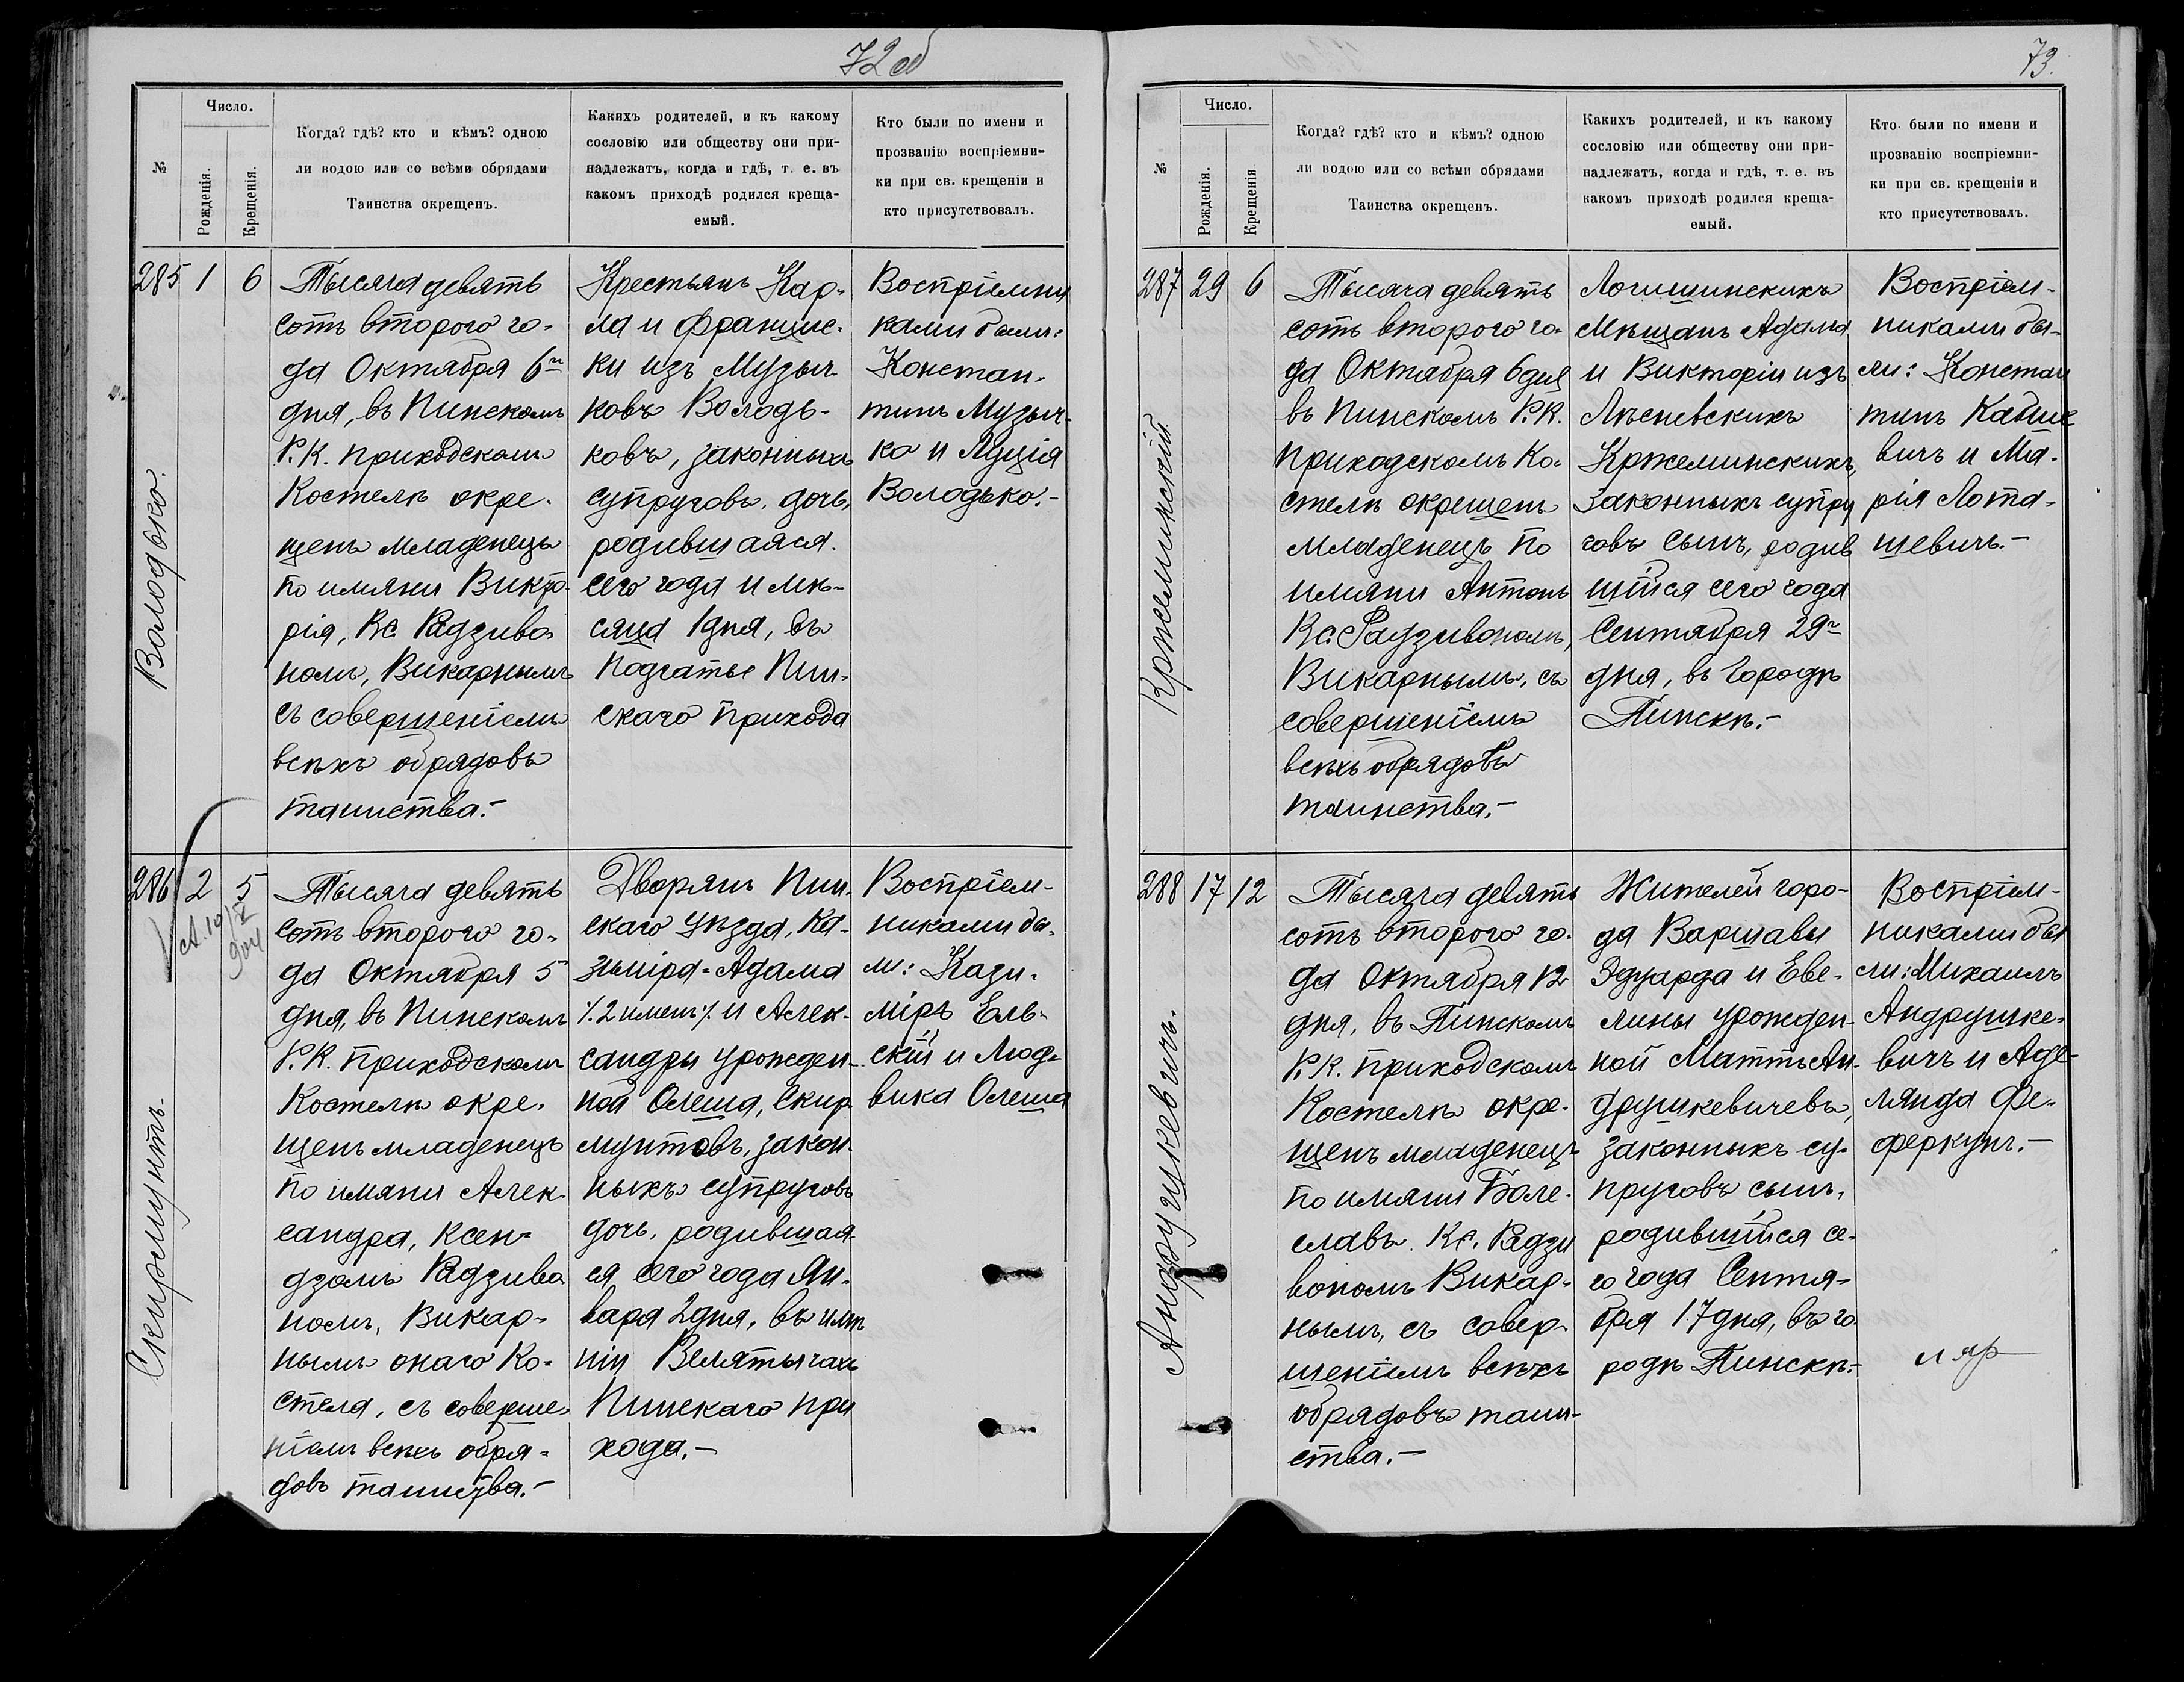 72 об
№
Число.
Рожденія.
Крещенія.
Когда? гдѣ? кто и кѣмъ? одною
ли водою или со всѣми обрядами
Таинства окрещенъ.
Какихъ родителей, и къ какому
сословію или обществу они при-
надлежатъ, когда и гдѣ, т. е. въ
какомъ приходѣ родился креща-
емый.
Кто были по имени и
прозванію воспріемни-
ки при св. крещеніи и
кто присутствовалъ.
285 1 6
Володько.
Тысяча девять
сотъ второго го-
да Октября 6го
дня, въ Пинскомъ
Р. К. приходскомъ
Костелѣ окре-
щенъ младенецъ
по имяни Викто-
рія, Кс. Радзиво
номъ, Викарнымъ
съ совершеніемъ
всѣхъ обрядовъ
таинства.-
Крестьянъ Кар-
ла и Францис-
ки изъ Музыч-
ковъ Володь-
ковъ, законныхъ
супруговъ, дочь,
родившаяся
сего года и мѣ-
сяца 1 дня, въ
Подгатье Пин-
скаго прихода
Воспріемни
ками были:
Констан-
тинъ Музыч-
ко и Луція
Володько.-
286 2 5
Скирмунтъ.
Тысяча девять
сотъ второго го-
да Октября 5
дня, въ Пинскомъ
Р. К. приходскомъ
Костелѣ окре-
щенъ младенецъ
по имяни Алек-
сандра, Ксен-
дзомъ Радзиво
номъ, Викар-
нымъ онаго Ко-
стела, съ соверше
ніемъ всѣхъ обря-
довъ таинства.-
Дворянъ Пин-
скаго уѣзда, Ка-
зиміра-Адама
/.2 именъ/. и Алек-
сандры урожден-
ной Олеша, Скир
мунтовъ, закон-
ныхъ супруговъ
дочь, родившая-
ся сего года Ян-
варя 2 дня, въ имѣ
ніи Велятычахъ
Пинскаго при
хода.-
Воспріем-
никами бы-
ли: Кази-
міръ Ель-
скій и Люд-
вика Олеша
73.
№
Число.
Рожденія.
Крещенія
Когда? гдѣ? кто и кѣмъ? одною
ли водою или со всѣми обрядами
Таинства окрещенъ.
Какихъ родителей, и къ какому
сословію или обществу они при-
надлежатъ, когда и гдѣ, т. е. въ
какомъ приходѣ родился креща-
емый.
Кто были по имени и
прозванію воспріемни-
ки при св. крещеніи и
кто присутствовалъ.
287 29 6
Кржеминскій
Тысяча девять
сотъ второго го-
да Октября 6 дня
въ Пинскомъ Р. К.
приходскомъ Ко-
стелѣ окрещенъ
младенецъ по
имяни Антонъ
Кс. Радзивономъ,
Викарнымъ, съ
совершеніемъ
всѣхъ обрядовъ
таинства.-
Логишинскихъ
Мѣщанъ Адама
и Викторіи изъ
Лѣсневскихъ
Кржеминскихъ,
законныхъ супру
говъ сынъ, родив
шійся сего года
Сентября 29го
дня, въ городѣ
Пинскѣ.-
Воспріем-
никами бы-
ли: Констан
тинъ Кабше
вичъ и Ма-
рія Лота-
шевичъ.-
288 17 12
Андрушкевичъ.
Тысяча девять
сотъ второго го-
да Октября 12
дня, въ Пинскомъ
Р. К. приходскомъ
Костелѣ окре-
щенъ младенецъ
по имяни Боле-
славъ. Кс. Радзи
вономъ Викар-
нымъ, съ совер-
шеніемъ всѣхъ
обрядовъ таин-
ства.-
Жителей горо-
да Варшавы
Эдуарда и Еве-
лины урожден-
ной Маттъ Ан-
друшкевичевъ,
законныхъ су-
пруговъ сынъ,
родившійся се-
го года Сентя-
бря 17 дня, въ го
родѣ Пинскѣ.-
Воспріем-
никами бы
ли: Михаилъ
Андрушке-
вичъ и Аде-
лянда Фе-
феркунъ.-